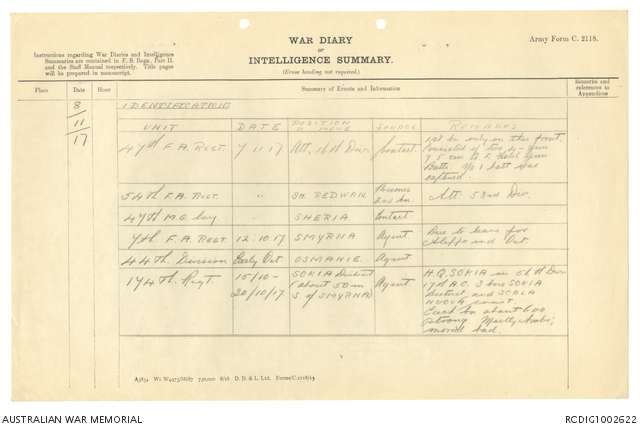 WAR DIARY
or
INTELLIGENCE SUMMARY.
(Erase heading not required.)
Army Form C. 2118.
Instructions regarding War Diaries and Intelligence
Summaries are contained in F. S. Regs., Part II.
and the Staff Manual respectively. Title pages
will be prepared in manuscript.
Place Date Hour Summary of Events and Information Remarks and references to Appendices
8
11
17
IDENTIFICATIONS
UNIT DATE POSITION SOURCE REMARKS
47th F.A. Regt 7.11.17 Att. 16th Divn Contact 1st bn only on this front.
Consisted of two 4-gun
7.5 cm Q.F. Field Gun
Batts. No 1 batt was
captured.
54th F.A. Regt " SH. REDWAN Att. 53rd Div
47th M.G. Coy " SHERIA Contact
7th F.A. Regt 12.10.17 SMYRNA Agent Due to leave for
Aleppo end Oct.
44th Division Early Oct OSMANIE Agent
174th Regt 15/10-
20/10/17 SOKIA District
(about 50 m
S of SMYRNA) Agent H.Q. SOKIA in
17th A.C. 3 bns SOKIA
District and SCALA
NUOVA coast
Each bn about 600
strong. Mostly Arabs;
moral bad.
D. D. & L. Ltd.
AUSTRALIAN WAR MEMORIAL RCDIG1002622